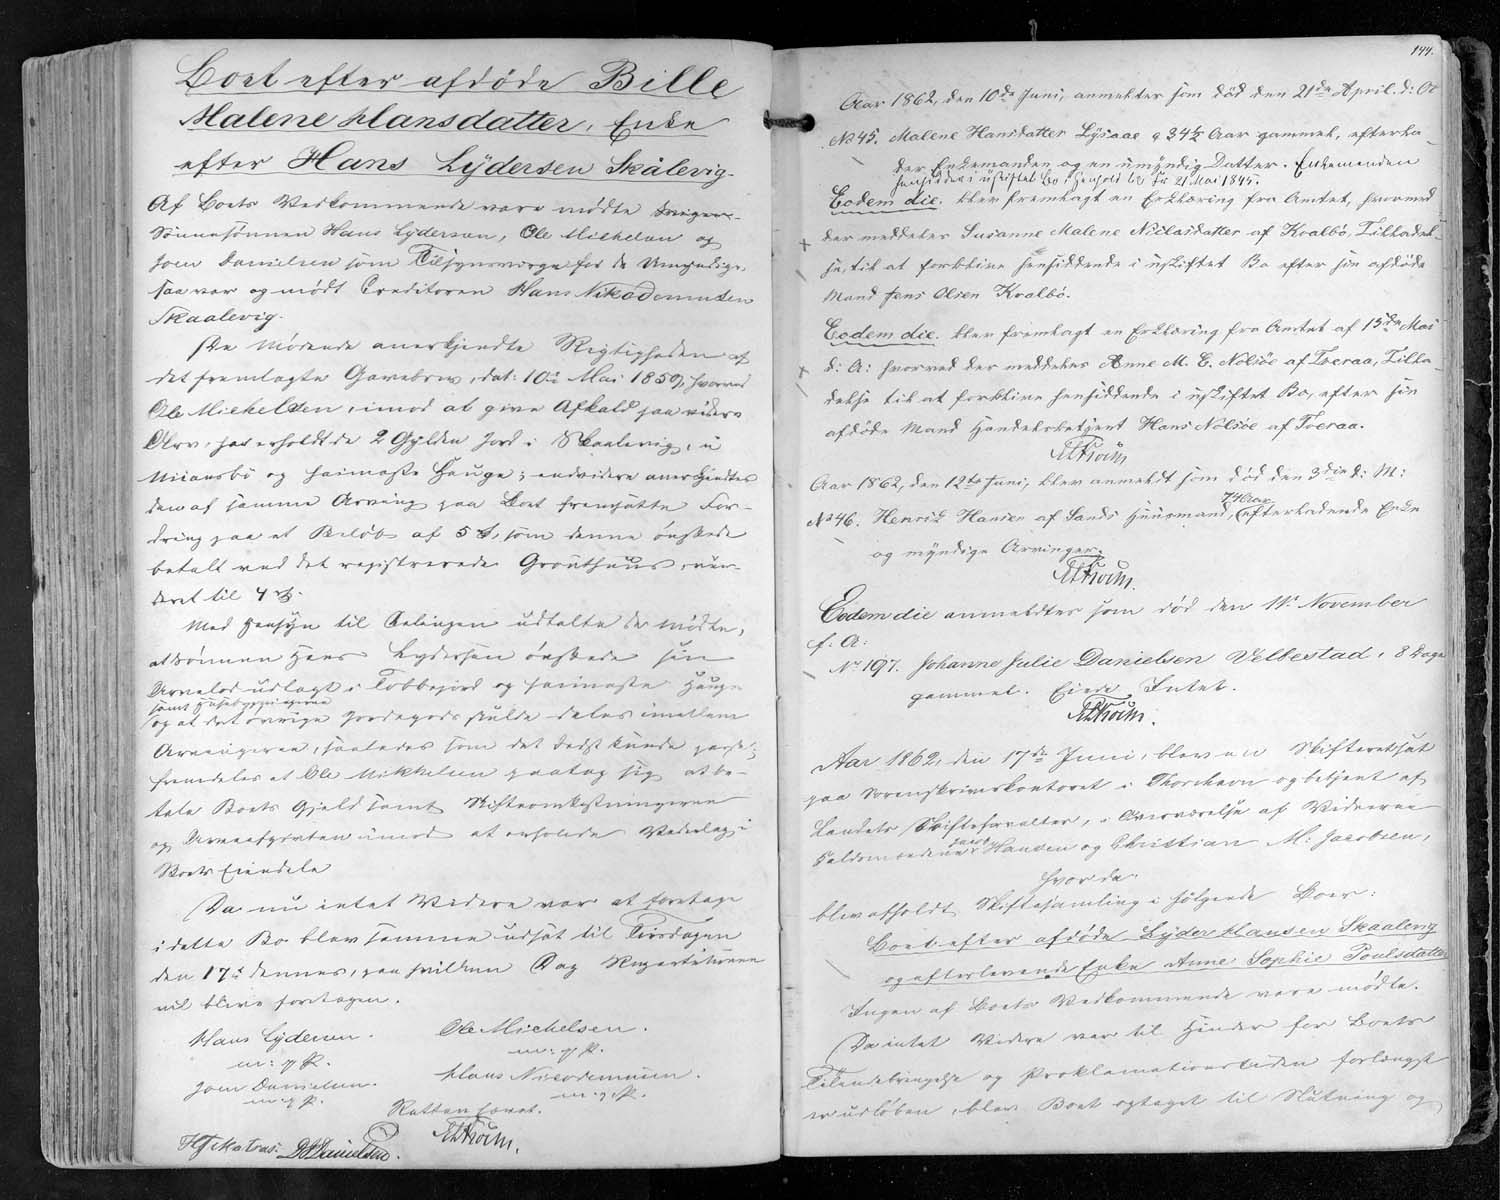 Boet efter afdøde Bille
Malene Hansdatter, Enke
efter Hans Lÿdersen Skålevig.
Af Boets Vedkommende vare mødte
Sønnesønnen Hans Lyderson, Ole Mikkelsen og
Joen Danielsen som Tilsynsværge for de Umyndige,
saa var og mødt Creditoren Hans Nikodemusen
Skaalevig.
De Mødende anerkjendte Rigtigheden af
det fremlagte Gavebrev, dat: 10de Mai 1859, hvorved
Ole Michelsen, imod at give Afkald paa videre
Arv, har erholdt de 2 Gylden Jord i Skaalevig, i
Miiansbø og Hauge; endvidere anerkjendtes
den af samme Arving paa Boet fremsatte For-
dring paa et Beløb af 5 , som denne ønskede
betalt ved det registrerede Grouthuus, vur-
deret til 4 .
Med Hensyn til Delingen udtalte de Mødte,
at Sønnen Hans Lydersen ønskede sin
Arvelod udlagt i og Hauge
samt Huusebygningerne
og at det øvrige Jordegods skulde deles imellem
Arvingerne, saaledes som det bedst kunde passe;
fremdeles at Ole Mikkelsen paatog sig at be-
tale Boets Gjeld samt Skifteomkostningerne
og Arveafgivten imod at erholde Vederlag i
Boets Eiendele
Da nu intet Videre var at foretage
i dette Bo blev samme udsat til Tirsdagen
den 17de dennes, paa hvilken Dag Repartitionen
vil blive foretagen.
Hans Lydersen. Ole Michelsen.
m: f. P. m: f. P.
Joen Danielsen. Hans Nicodemusen.
m. f. P. m. f. P.
Retten hævet.
DJDanielsen.
144.
Aar 1862, den 10de Juni, anmeldtes som død den 21de April d: A:
No 45. Malene Hansdatter Lÿsaae 34½ Aar gammel, efterla-
der Enkemanden og en umyndig Datter. Enkemanden
hensidder i uskiftet Bo i Henhold til Fr 21 Mai 1845.
Eodem die. blev fremlagt en Erklæring fra Amtet, hvorved
der meddeles Susanne Malene Niclasdatter af Kvalbø, Tilladel-
se, til at forblive hensiddende i uskiftet Bo efter sin afdøde
Mand Jens Olsen Kvalbø.
Eodem die. blev fremlagt en Erklæring fra Amtet af 13de Mai
d: A: hvorved der meddeles Anne M. C. Nolsöe af Tveraa, Tilla-
delse til at forblive hensiddende i uskiftet Bo, efter sin
afdøde Mand Handelsbetjent Hans Nolsöe af Tveraa.
Aar 1862, den 12te Juni, blev anmeldt som død den 3die d: M:
74 Aar
No 46. Henrik Hansen af Sands Huusmand, efterladende Enke
og myndige Arvinger.
Eodem die anmeldtes som død den 11te November
f: A:
No 197. Johanne Julie Danielsen Velbestad, 8 Dage
gammel. Eiede Intet.
Aar 1862, den 17de Juni, blev en Skifteret sat
paa Sorenskriverkontoret i Thorshavn og betjent af
Landets Skifteforvalter, i Overværelse af Vidnerne
Taldsmændene Hansen og Christian M: Jacobsen,
hvor da
blev afholdt Skiftesamling i følgende Boer:
Boet efter afdøde Lÿder Hansen Skaalevig
og efterlevende Enke Anne Sophie Poulsdatter
Ingen af Boets Vedkommende vare mødte.
Da intet Videre var til Hinder for Boets
Tilendebringelse og Proklamationstiden forlængst
er udløben, blev Boet optaget til Slutning og